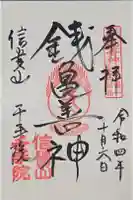 奉拝
令和四年
十月六日
銭亀善神
信貴山
千手院